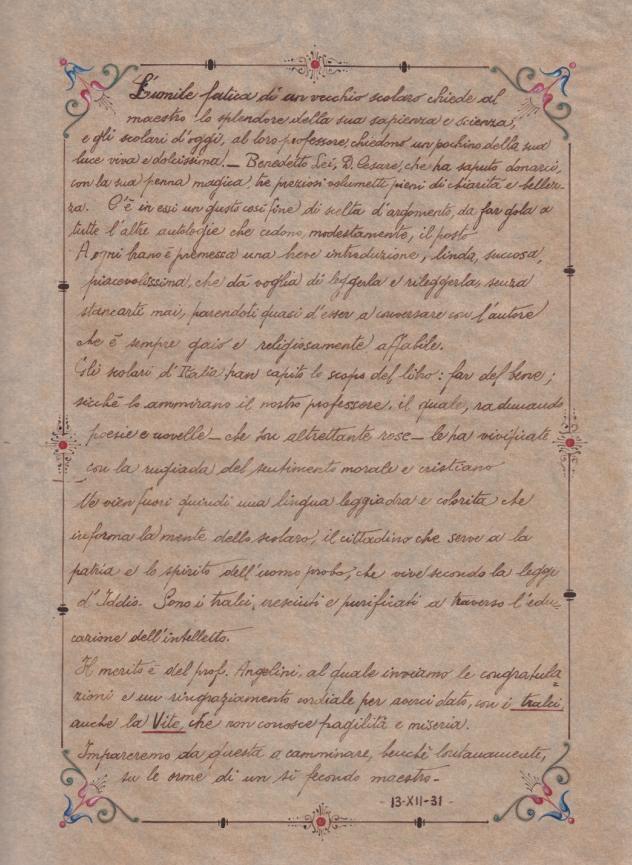 L'umile fatica di un vecchio scolaro chiede al
maestro lo splendore della sua sapienza e scienza,
e gli scolari d'oggi, al loro professore, chiedono un pochino della sua
luce viva e dolcissima. — Benedetto Lei, D. Cesare, che ha saputo donarci,
con la sua penna magica, tre preziosi volumetti pieni di chiarità e bellez-
za. C'è in essi un gusto così fine di scelta d'argomento, da far gola a
tutte l'altre antologie che cedono, modestamente, il posto.
A ogni brano è premessa una breve introduzione, linda, succosa,
piacevolissima, che dà voglia di leggerla e rileggerla, senza
stancarti mai, parendoti quasi d'esser a conversare con l'autore
che è sempre gaio e religiosamente affabile.
Gli scolari d'Italia han capito lo scopo del libro: far del bene;
sicchè lo ammirano il nostro professore, il quale, radunando
poesie e novelle — che son altrettante rose — le ha vivificate
con la rugiada del sentimento morale e cristiano
Ne vien fuori quindi una lingua leggiadra e colorita che
informa la mente dello scolaro, il cittadino che serve a la
patria e lo spirito dell'uomo probo, che vive secondo la legge
d'Iddio. Sono i tralci, cresciuti e purificati a traverso l'edu-
cazione dell'intelletto.
Il merito è del prof. Angelini, al quale inviamo le congratula
zioni e un ringraziamento cordiale per averci dato, con i tralci,
anche la Vite, che non conosce fragilità e miseria.
Impareremo da questa a camminare, benchè lontanamente,
su le orme di un sì fecondo maestro.-
- 13-XII-31 -